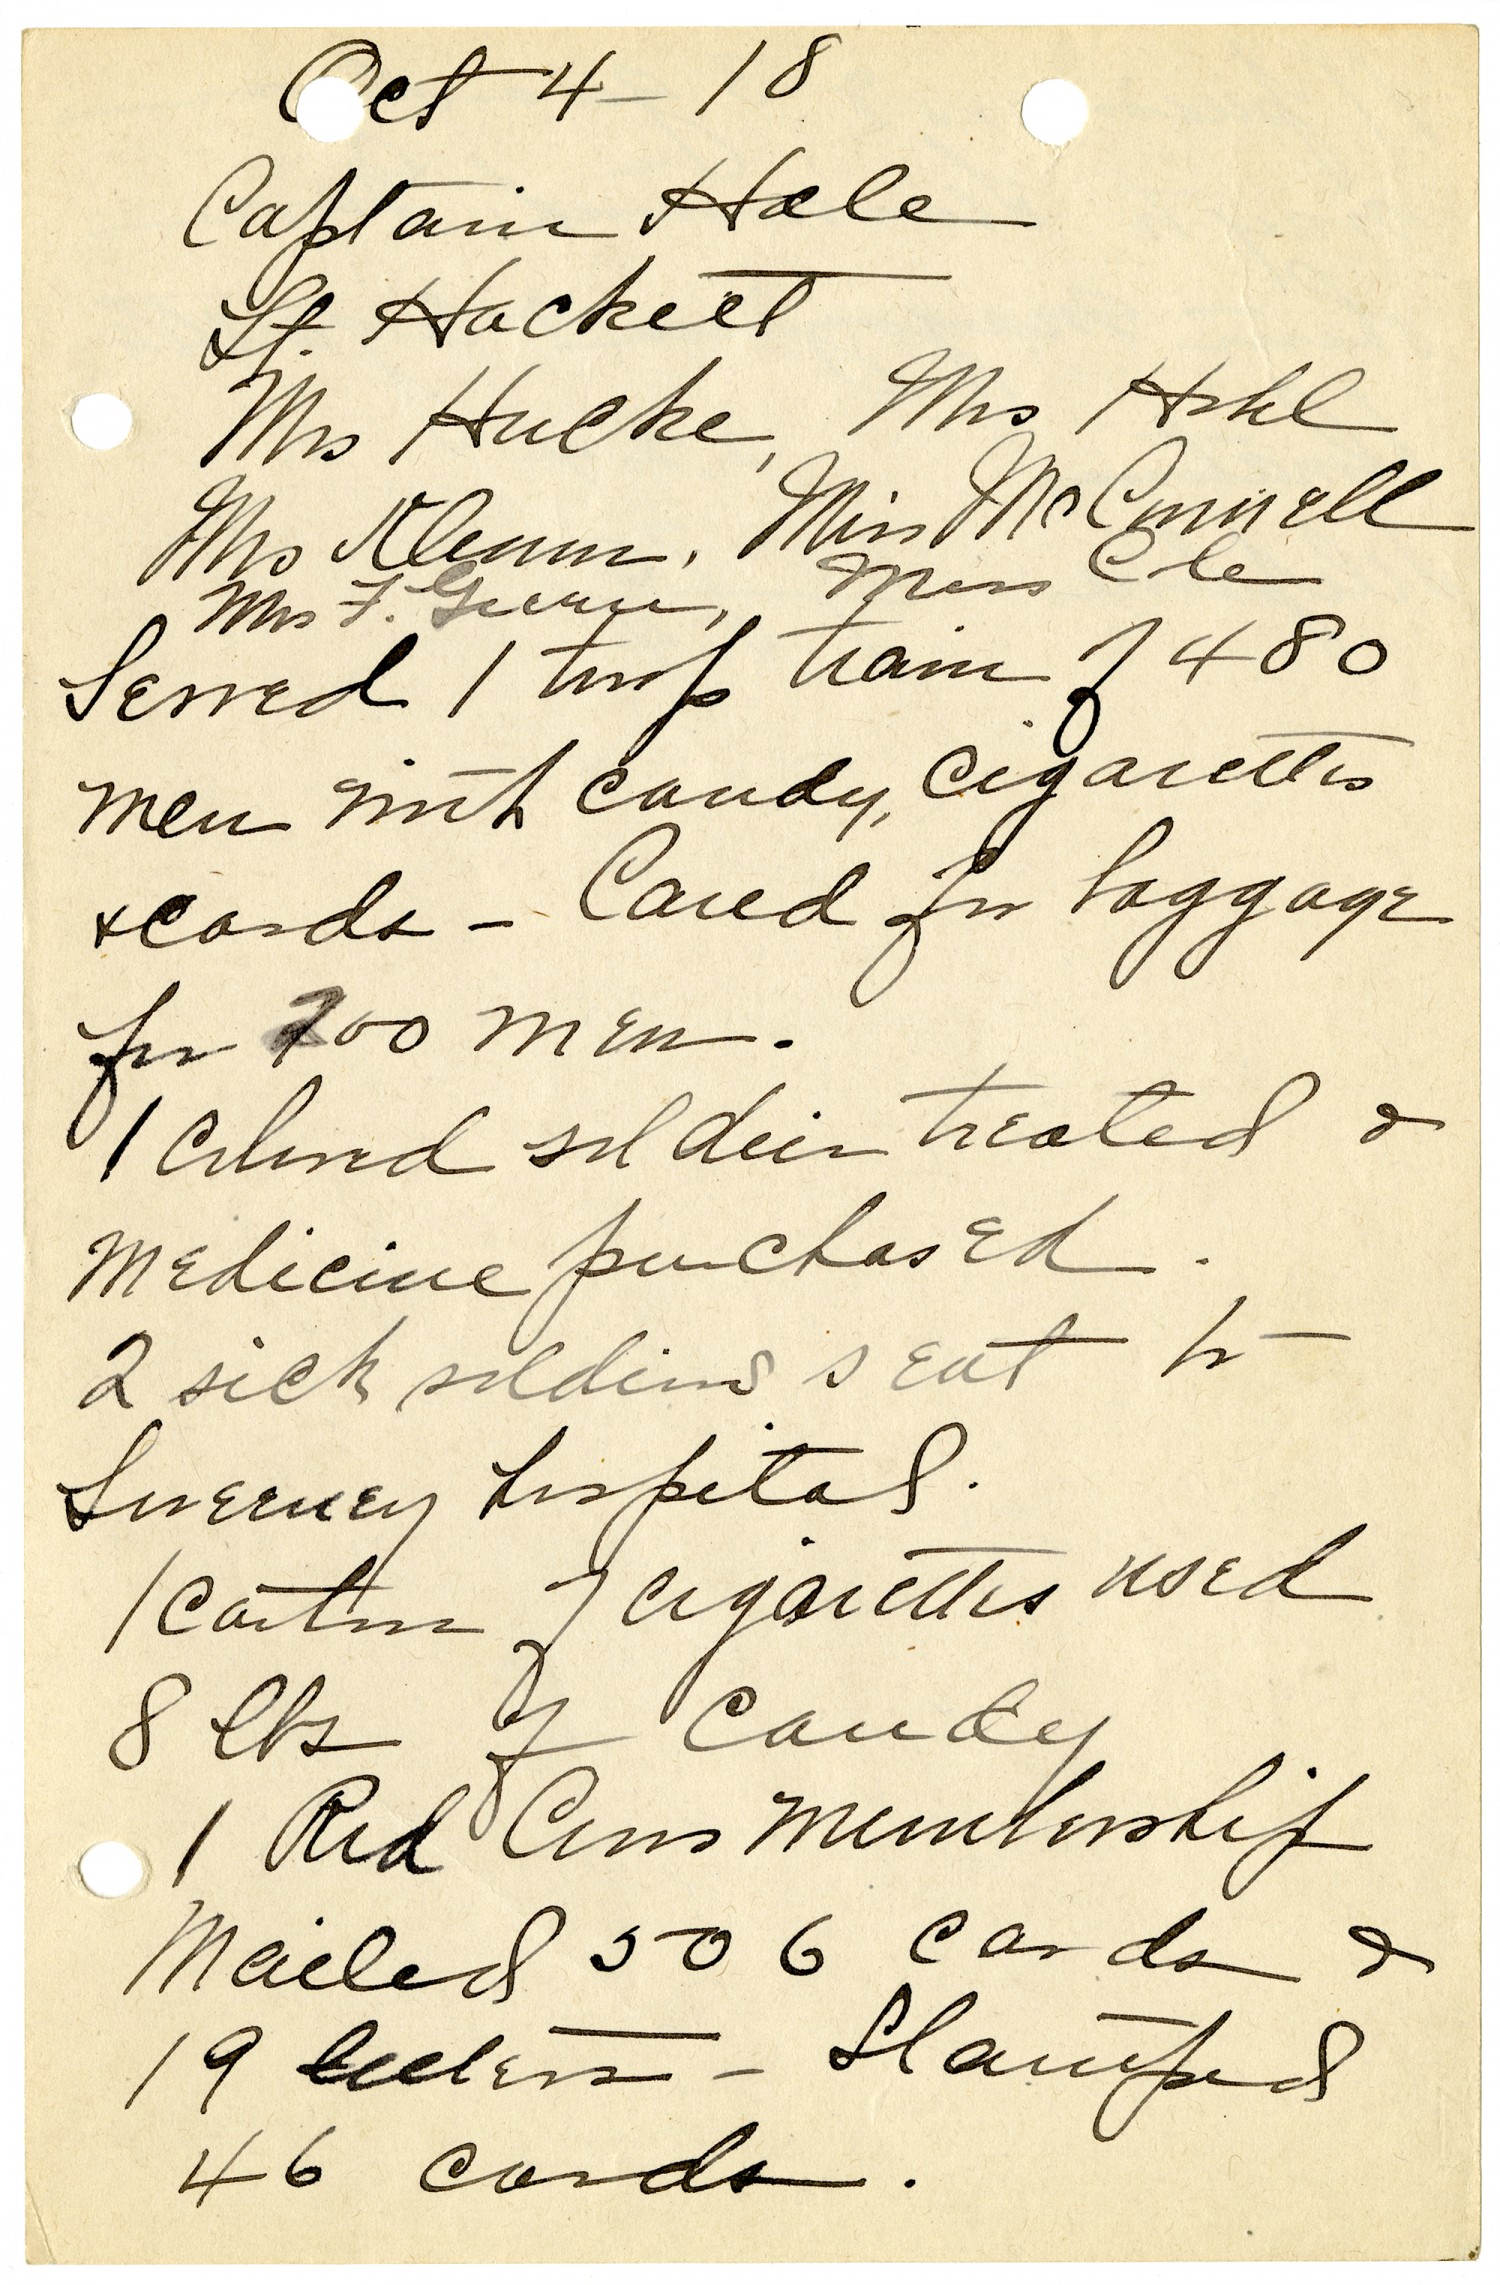 Oct 4 - 18
Captain Hale
Lt. Hackett
Mrs Hucke, Mrs Hohl
Mrs Klemm, Miss McConnell
Mrs F. Greene, Miss Cole
Served 1 troop train of 480
men with candy, cigarettes
& cards - Cared for baggage
for 200 men.
1 colored soldier treated &
medicine purchased.
2 sick soldiers sent to
Sweeney hospital.
1 carton of cigarettes used
8 lbs of candy
1 Red Cross membership
Mailed 506 cards &
19 letters - Stamped
46 cards.